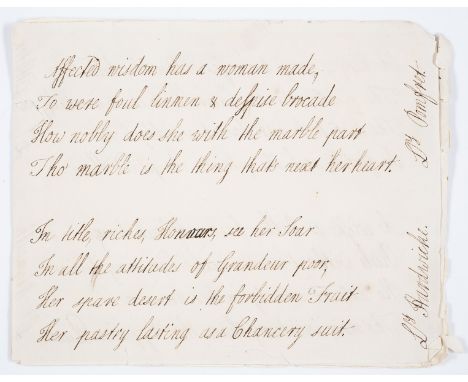 Affected wisdom has a woman made,
To were foul linnen & despise brocade
How nobly does she with the marble part
Tho' marble is the thing that's next her heart.
Ldy. Pomfret.
In title, riches, Honours, see her Soar
In all the attitudes of Grandeur poor,
Her spare desert is the forbidden Fruit
Her pastry lasting as a Chancery suit.
Ldy. Hardwicke.